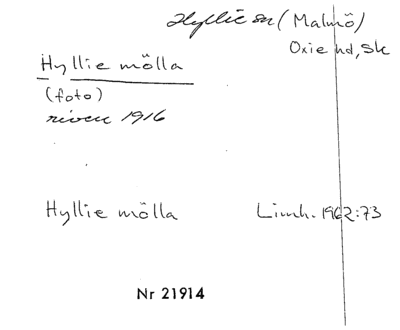 Hyllie sn (Malmö)
Oxie hd, Sk
Hyllie mölla
(foto)
riven 1916
Hyllie mölla Limh. 1962:73
Nr 21914